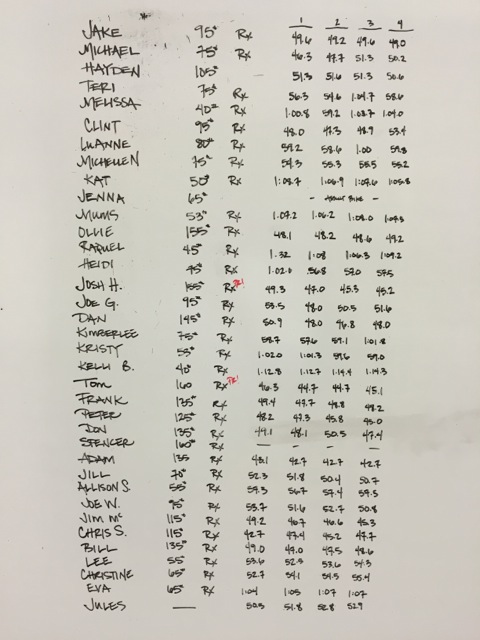 1 2 3 4
JAKE 95# Rx 49.6 49.2 49.6 49.0
MICHAEL 75# Rx 46.3 47.7 51.3 50.2
HAYDEN 105# 51.3 51.6 51.3 50.6
TERI 75# Rx 56.3 54.6 1:04.7 58.6
MELISSA 40# Rx 1:00.8 59.2 1:03.7 1:04.0
CLINT 95# Rx 48.0 47.3 48.9 53.4
LUANNE 80# Rx 59.2 58.6 1:00 59.8
MICHELLE N 75# Rx 54.3 55.3 55.5 55.2
KAT 50# Rx 1:08.7 1:06.9 1:07.6 1:05.8
JENNA 65# - ASSAULT BIKE -
MUMS 53# Rx 1:07.2 1:06.2 1:08.0
OLLIE 155# Rx 48.1 48.2 48.6 49.2
RAQUEL 45# Rx 1:32 1:08 1:06.3 1:09.2
HEIDI Rx 1:02.0 56.8 57.0 57.5
JOSH H. 155# Rx PR! 49.3 47.0 45.3 45.2
JOE G. 95# Rx 53.5 48.0 50.5 51.6
DAN 145# Rx 50.9 48.0 46.8 48.0
KIMBERLEE 75# Rx 58.7 57.6 59.1 1:01.8
KRISTY 53# Rx 1:02.0 1:01.3 59.6 59.0
KELLI B. 40# Rx 1:12.8 1:12.7 1:14.4 1:14.3
TOM 160 Rx PR! 46.3 44.7 44.7 45.1
FRANK 135# Rx 49.4 47.7 48.8 48.2
PETER 125# Rx 48.2 47.3 45.8 45.0
DON 135# Rx 49.1 48.1 50.5 47.4
SPENCER 160# Rx — — — —
ADAM 135 Rx 43.1 42.7 42.7 42.7
JILL 70# Rx 52.3 51.8 50.4 50.7
ALLISON S. 55# Rx 59.3 56.7 57.4 59.5
JOE W. 95# Rx 53.7 51.6 52.7 50.8
JIM MC 115# Rx 49.2 46.7 46.6 45.3
CHRIS S. 115# Rx 42.7 47.4 45.2 47.7
BILL 135# Rx 49.0 47.0 47.5 48.6
LEE 55# Rx 53.6 52.5 53.6 54.3
CHRISTINE 65# Rx 52.7 54.1 54.5 55.4
EVA 65# Rx 1:04 1:05 1:07 1:07
JULES — 50.5 51.8 52.8 52.9